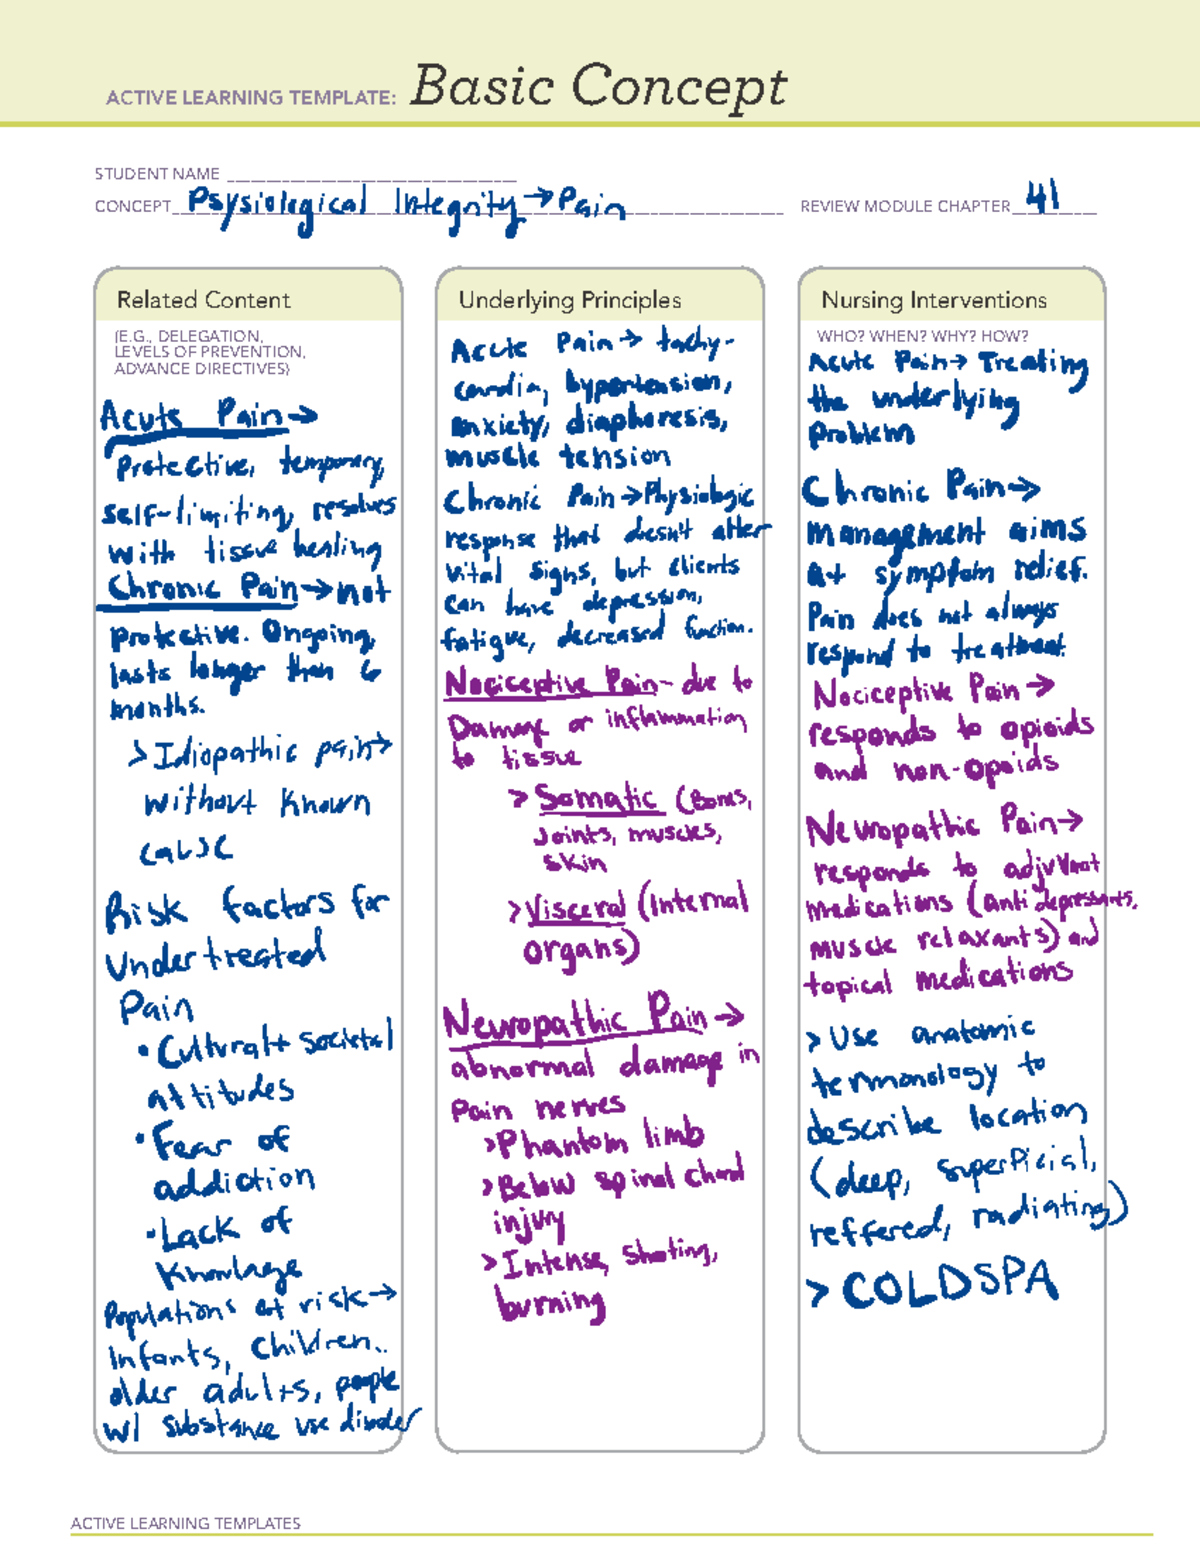 ACTIVE LEARNING TEMPLATE: Basic Concept
STUDENT NAME
CONCEPT Psysiological Integrity → Pain REVIEW MODULE CHAPTER 41
Related Content
(E.G., DELEGATION,
LEVELS OF PREVENTION,
ADVANCE DIRECTIVES)
Acute Pain →
Protective, temporary,
self-limiting, resolves
with tissue healing
Chronic Pain → not
protective. Ongoing,
lasts longer than 6
months.
> Idiopathic pain →
without known
cause
Risk factors for
Undertreated
Pain
• Cultural + societal
attitudes
• Fear of
addiction
• Lack of
Knowlege
Populations at risk →
Infants, Children..
older adults, people
w/ substance use disoder
Underlying Principles
Acute Pain → tachy-
cardia, hypertension,
anxiety, diaphoresis,
muscle tension
Chronic Pain → Physiologic
response that doesn't alter
vital signs, but clients
can have depression,
fatigue, decreased function.
Nociceptive Pain - due to
Damage or inflammation
to tissue
> Somatic (Bones,
Joints, muscles,
skin
> Visceral (Internal
organs)
Neuropathic Pain →
abnormal damage in
Pain nerves
> Phantom limb
> Below spinal chord
injury
> Intense, shooting,
burning
Nursing Interventions
WHO? WHEN? WHY? HOW?
Acute Pain → Treating
the underlying
problem
Chronic Pain →
management aims
at symptom relief.
Pain does not always
respond to treatment
Nociceptive Pain →
responds to opioids
and non-opoids
Neuropathic Pain →
responds to adjuvant
medications (antidepressants,
muscle relaxants) and
topical medications
> Use anatomic
termonology to
describe location
(deep, superficial,
reffered, radiating)
> COLDSPA
ACTIVE LEARNING TEMPLATES